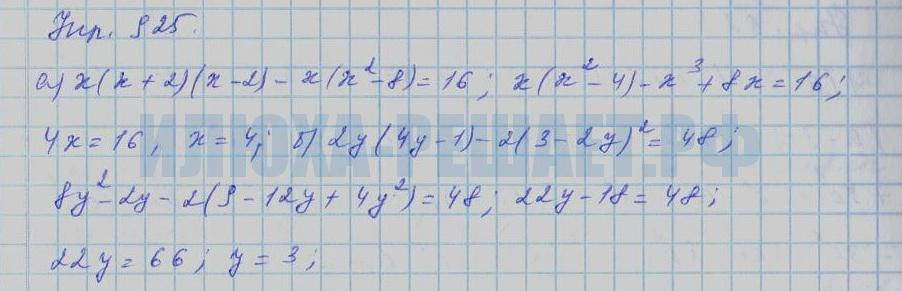 Упр. 925.
а) x(x+2)(x-2) - x(x²-8) = 16; x(x²-4) - x³ + 8x = 16;
4x = 16, x = 4; б) 2y(4y-1) - 2(3-2y)² = 48;
8y² - 2y - 2(9 - 12y + 4y²) = 48; 22y - 18 = 48;
22y = 66; y = 3;
ИЛЮХА-РЕШАЕТ.РФ